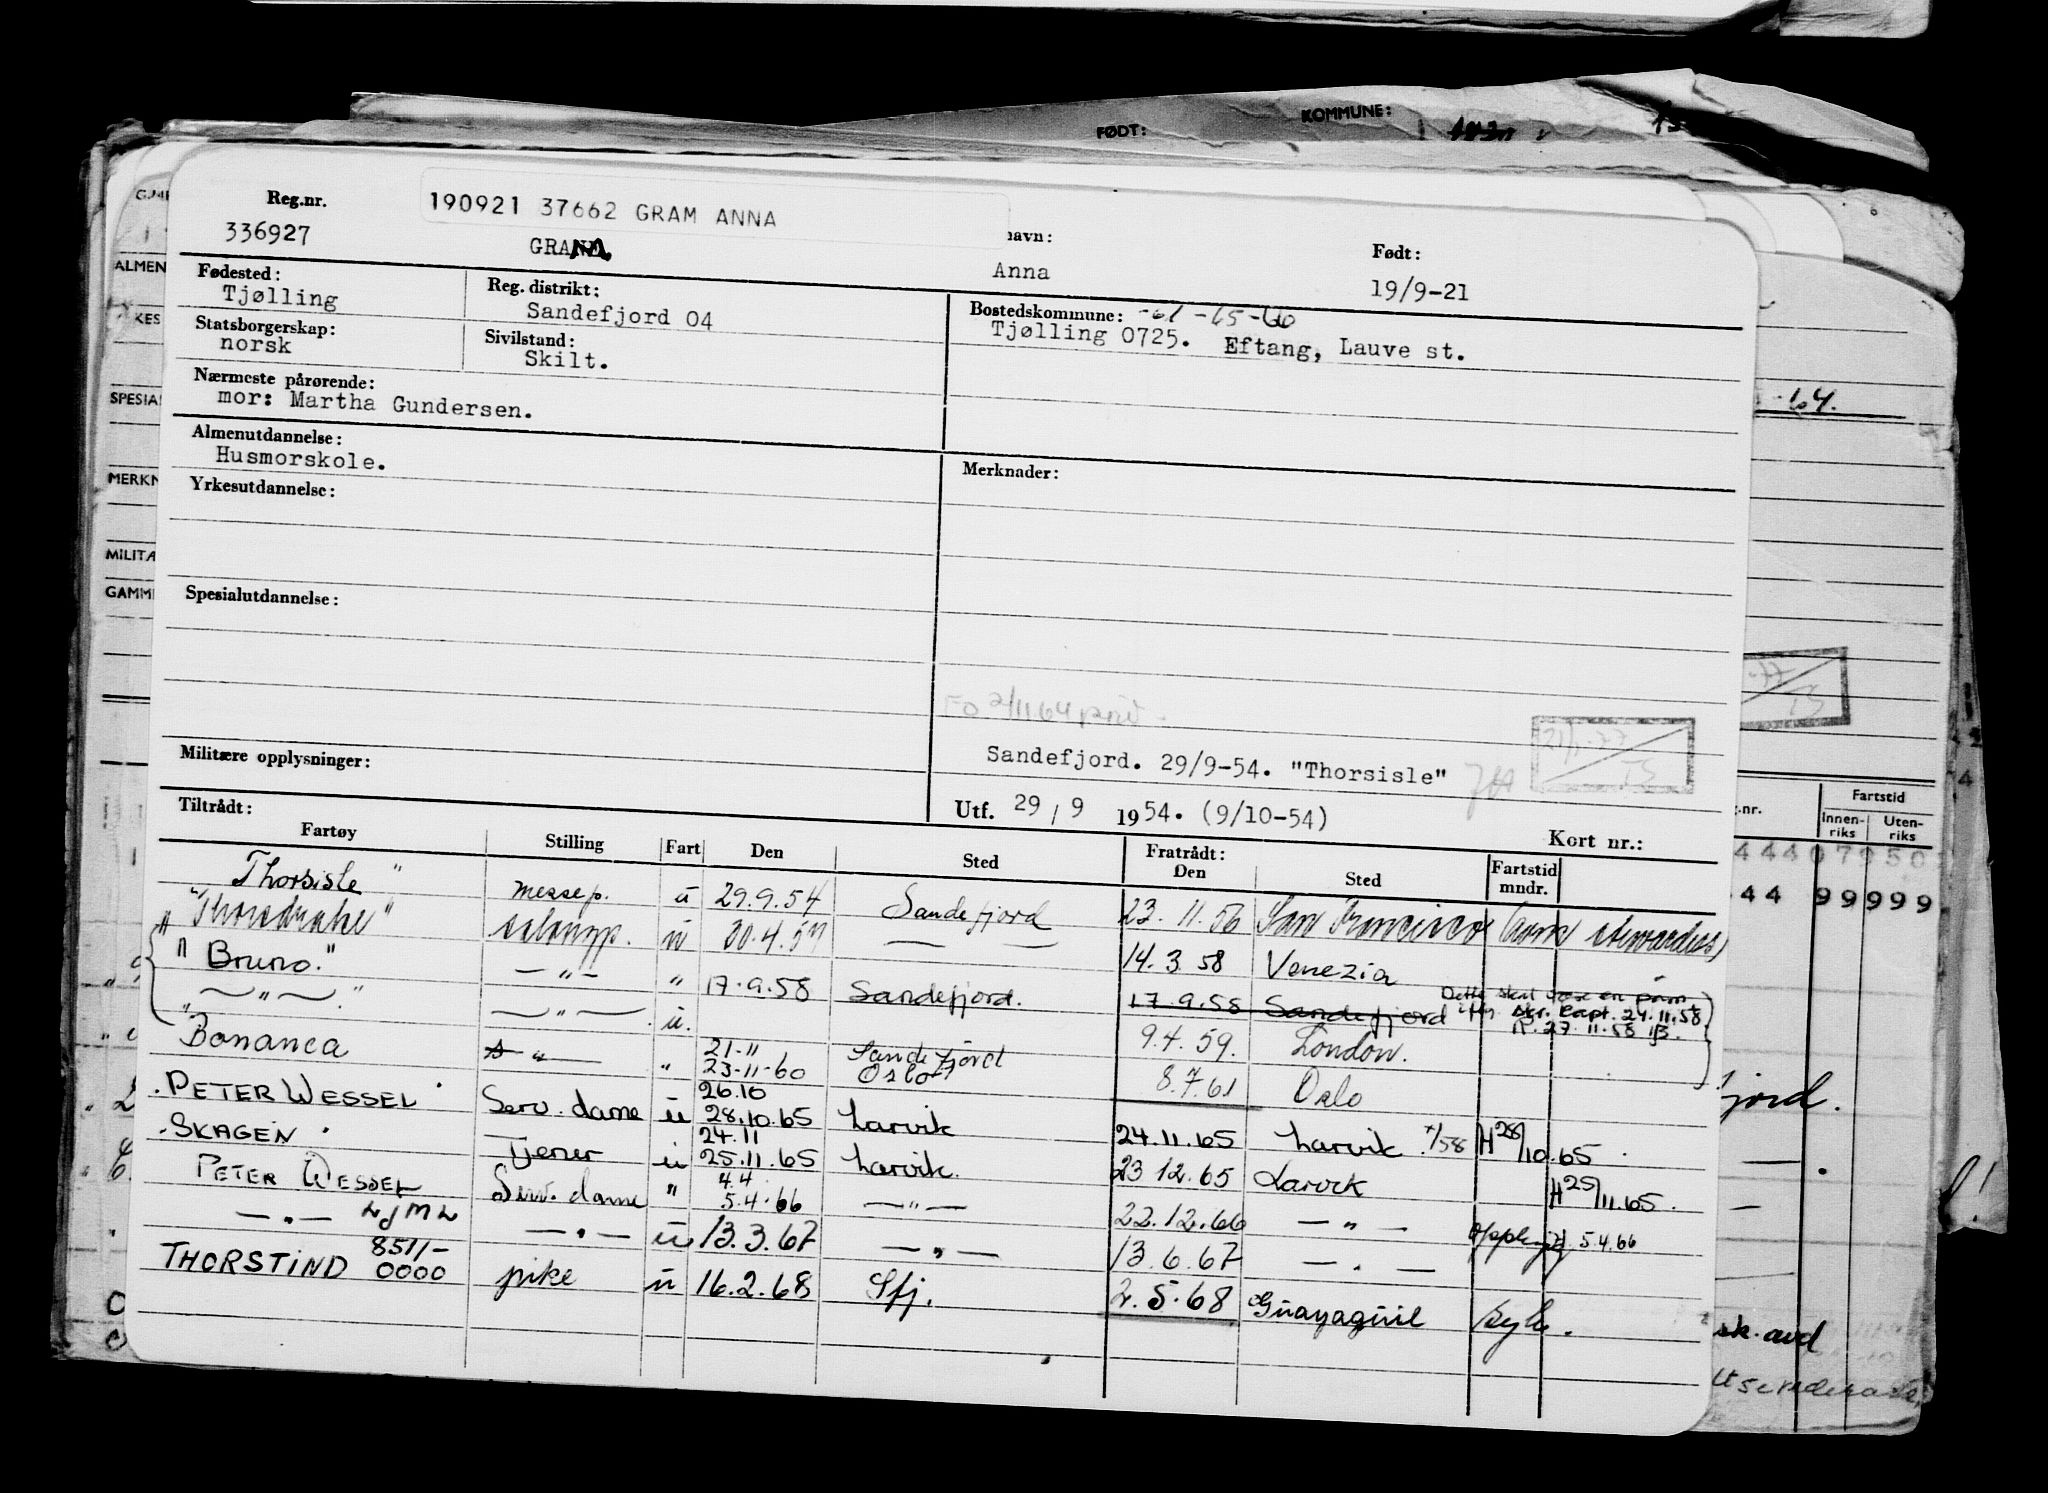 FØDT: KOMMUNE:
Reg.nr. 190921 37662 GRAM ANNA
336927 GRAM Anna navn: Født: 19/9-21
Fødested: Tjølling Reg. distrikt: Sandefjord 04 Bostedskommune: -61 -65-66
Tjølling 0725. Eftang, Lauve st.
Statsborgerskap: norsk Sivilstand: Skilt.
Nærmeste pårørende:
mor: Martha Gundersen.
Almenutdannelse: Merknader:
Husmorskole.
Yrkesutdannelse:
Spesialutdannelse:
Militære opplysninger: Sandefjord. 29/9-54. "Thorsisle"
Utf. 29 / 9 1954. (9/10-54) Kort nr.:
Tiltrådt: Fratrådt:
Fartøy Stilling Fart Den Sted Den Sted Fartstid mndr.
Thorsisle" messep. u 29.9.54 Sandefjord 23.11.56 San Francisco
"Thorsdrake" salongp. u 14.3.58 Venezia
"Bruno." — " — " 17.9.58 Sandefjord. 17.9.58 Sandefjord
— " — — " — u. 9.4.59. London.
skr. Rapt. 24.11.58
Bonanca — " — " 21-11 23-11-60 Sandefjord Oslo 8.7.61 Oslo
PETER WESSEL Serv. dame u 26.10 28.10.65 Larvik 24.11.65 Larvik H 28/10.65
SKAGEN Tjener u 24.11 25.11.65 Larvik. 23 12.65 Larvik H 25/11.65.
PETER WESSEL Serv. dame " 4.4 5.4.66 — " — 22.12.66 — " — 5.4.66
— " — LJML — " — u 13.3.67 — " — 13.6.67 — " —
THORSTIND 851/- 0000 pike u 16.2.68 Sfj. 2.5.68 Guayaquil syk.
ALMEN
SPESIA
MERKN
MILITÆ
GAMM
-64.
Fartstid
Innenriks Utenriks
44 99999
jord.
sk. avd